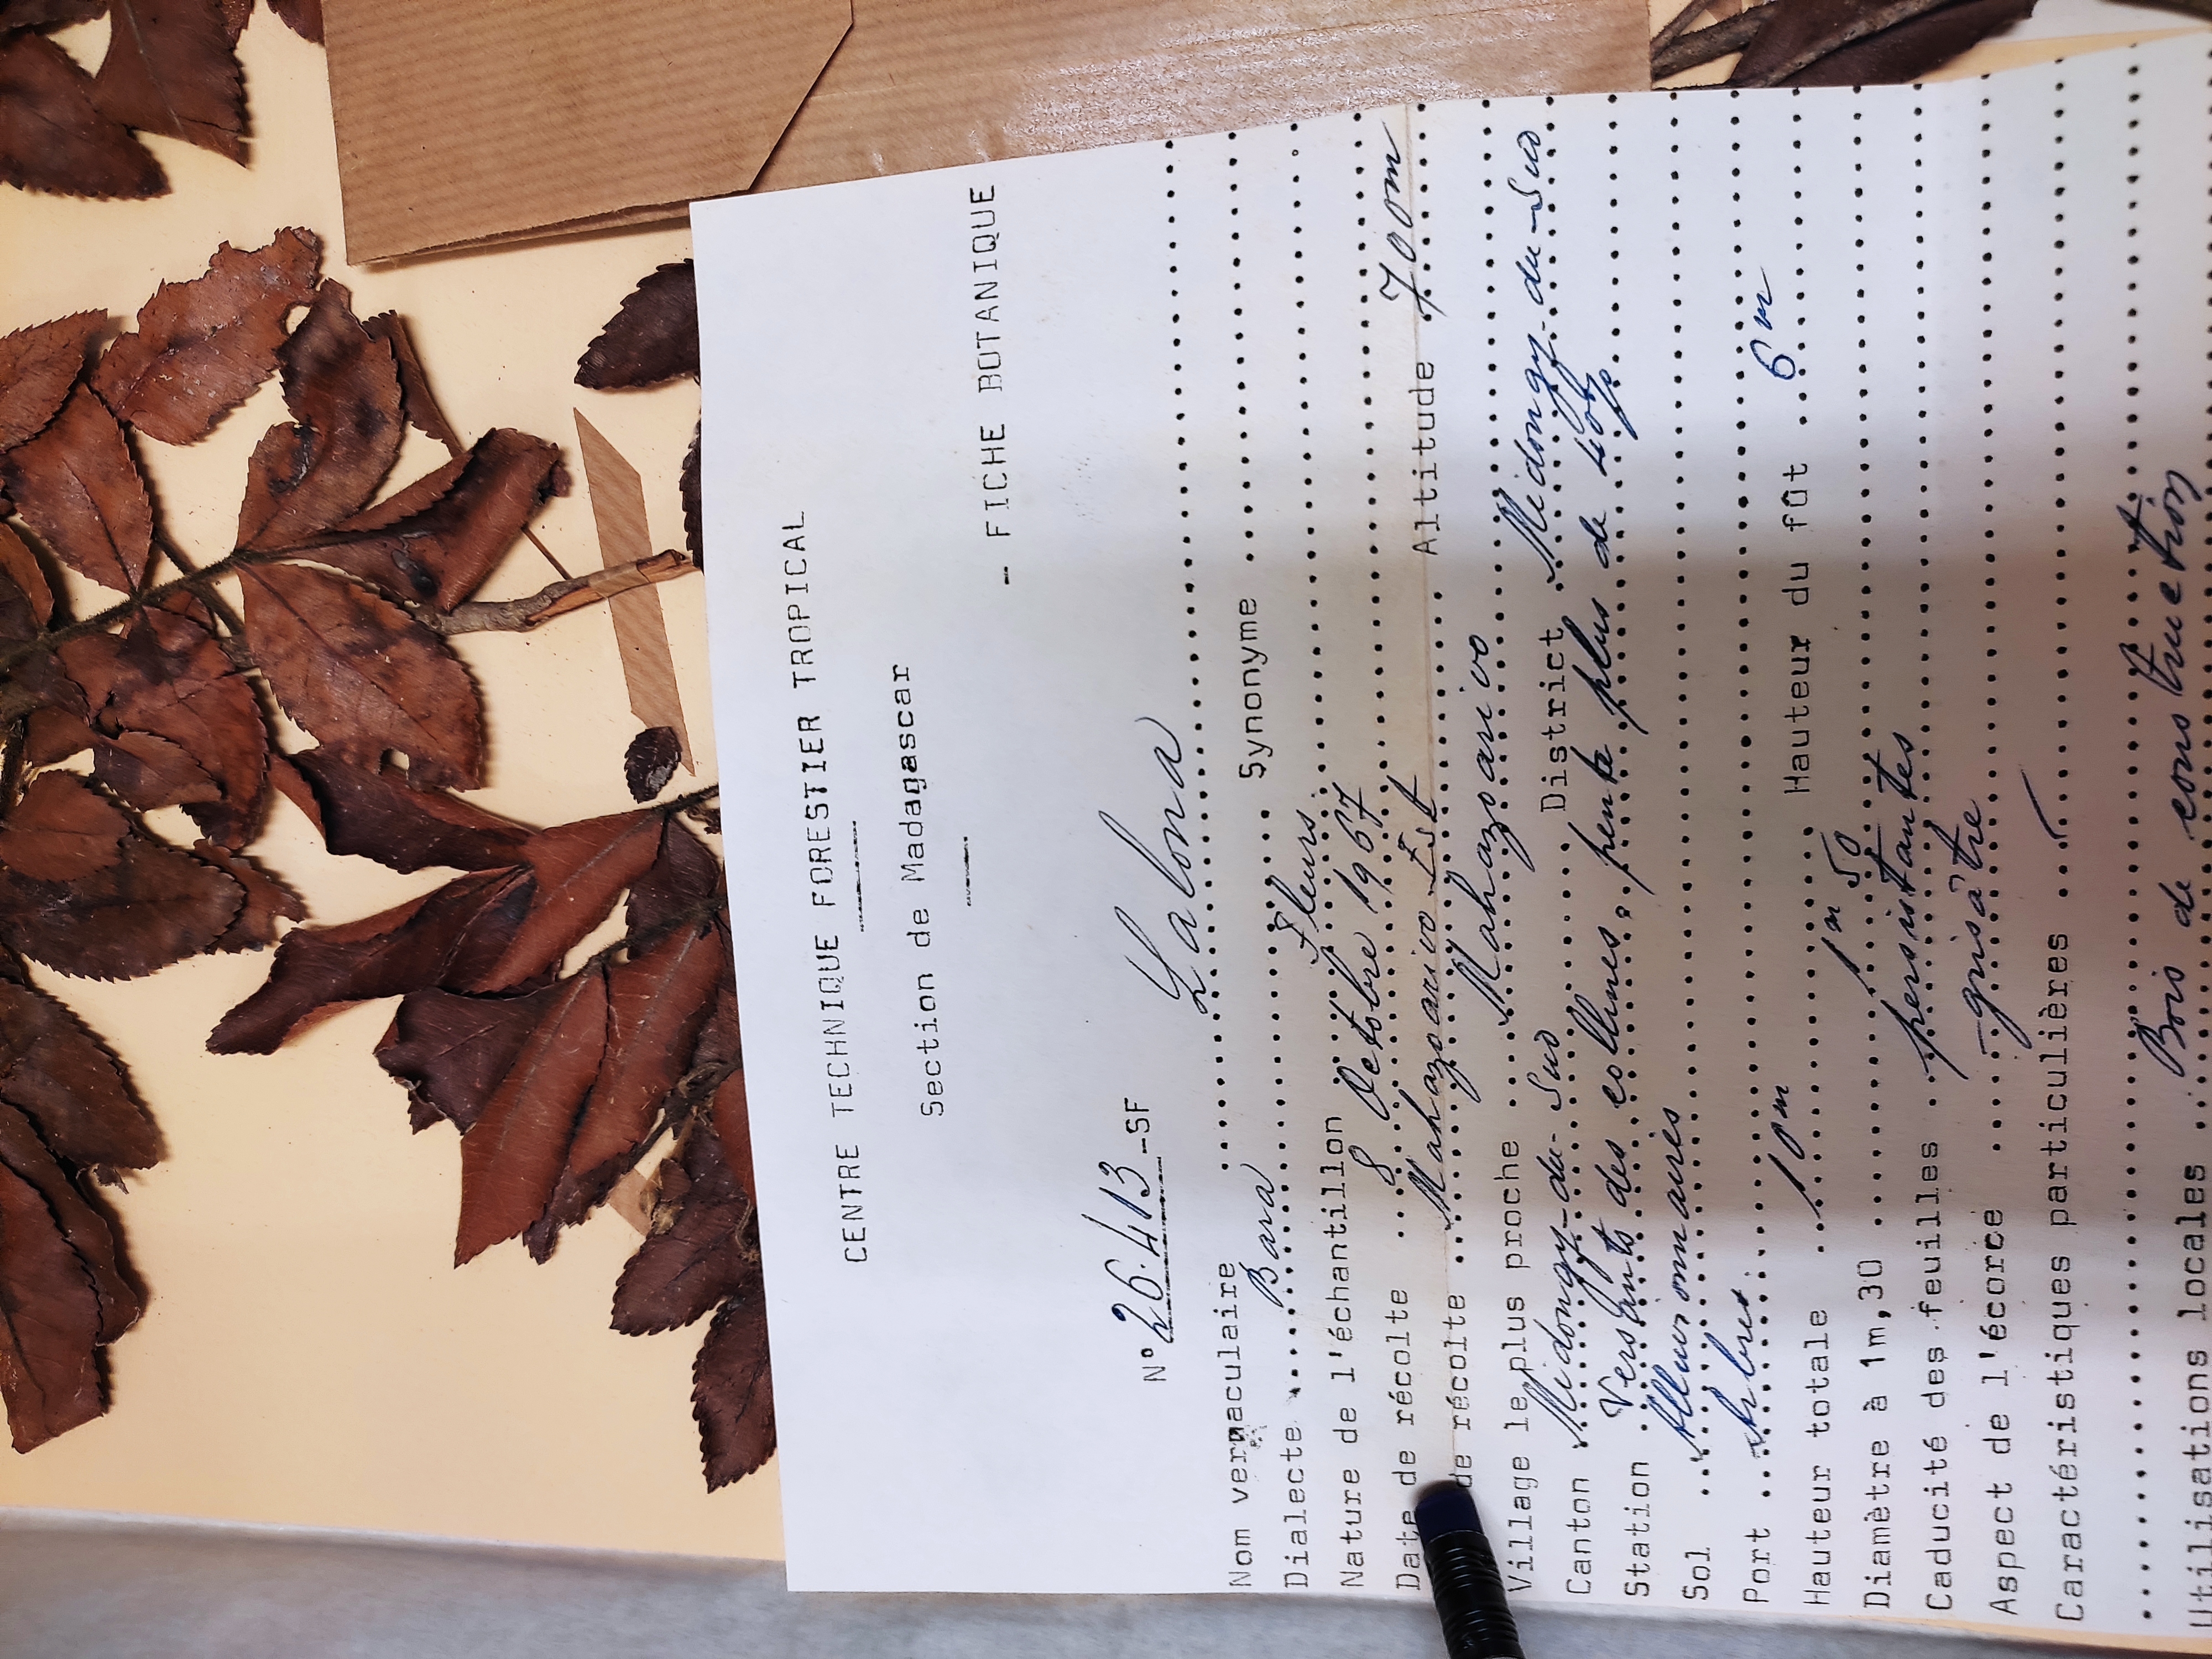 CENTRE TECHNIQUE FORESTIER TROPICAL
Section de Madagascar
- FICHE BOTANIQUE
N° 26.413 -SF
Nom vernaculaire ........ Lalona ........
Dialecte ..... Bara ........ Synonyme ........
Nature de l'échantillon ........ Fleurs ........
Date de récolte .... 8 Octobre 1967 ........
de récolte ... Mahazoarivo Est ........ Altitude ..700m....
Village le plus proche .... Mahazoarivo ........
Canton .Midongy-du-Sud........ District .Midongy-du-Sud
Station .Versants des collines, pente plus de 40%........
Sol ........
Port ...Arbre........
Hauteur totale ...10m........ Hauteur du fût ..6m....
Diamètre à 1m,30 ........1m 50........
Caducité des feuilles ..persistantes........
Aspect de l'écorce .....grisâtre........
Caractéristiques particulières ........
Utilisations locales ...Bois de construction